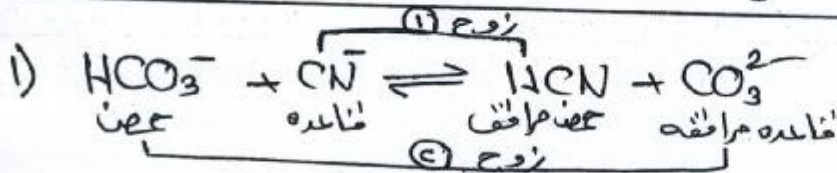 زوج ①
1) HCO₃⁻ + CN⁻ ⇌ HCN + CO₃²⁻
حمض قاعده حمض مرافق قاعده مرافقه
زوج ②